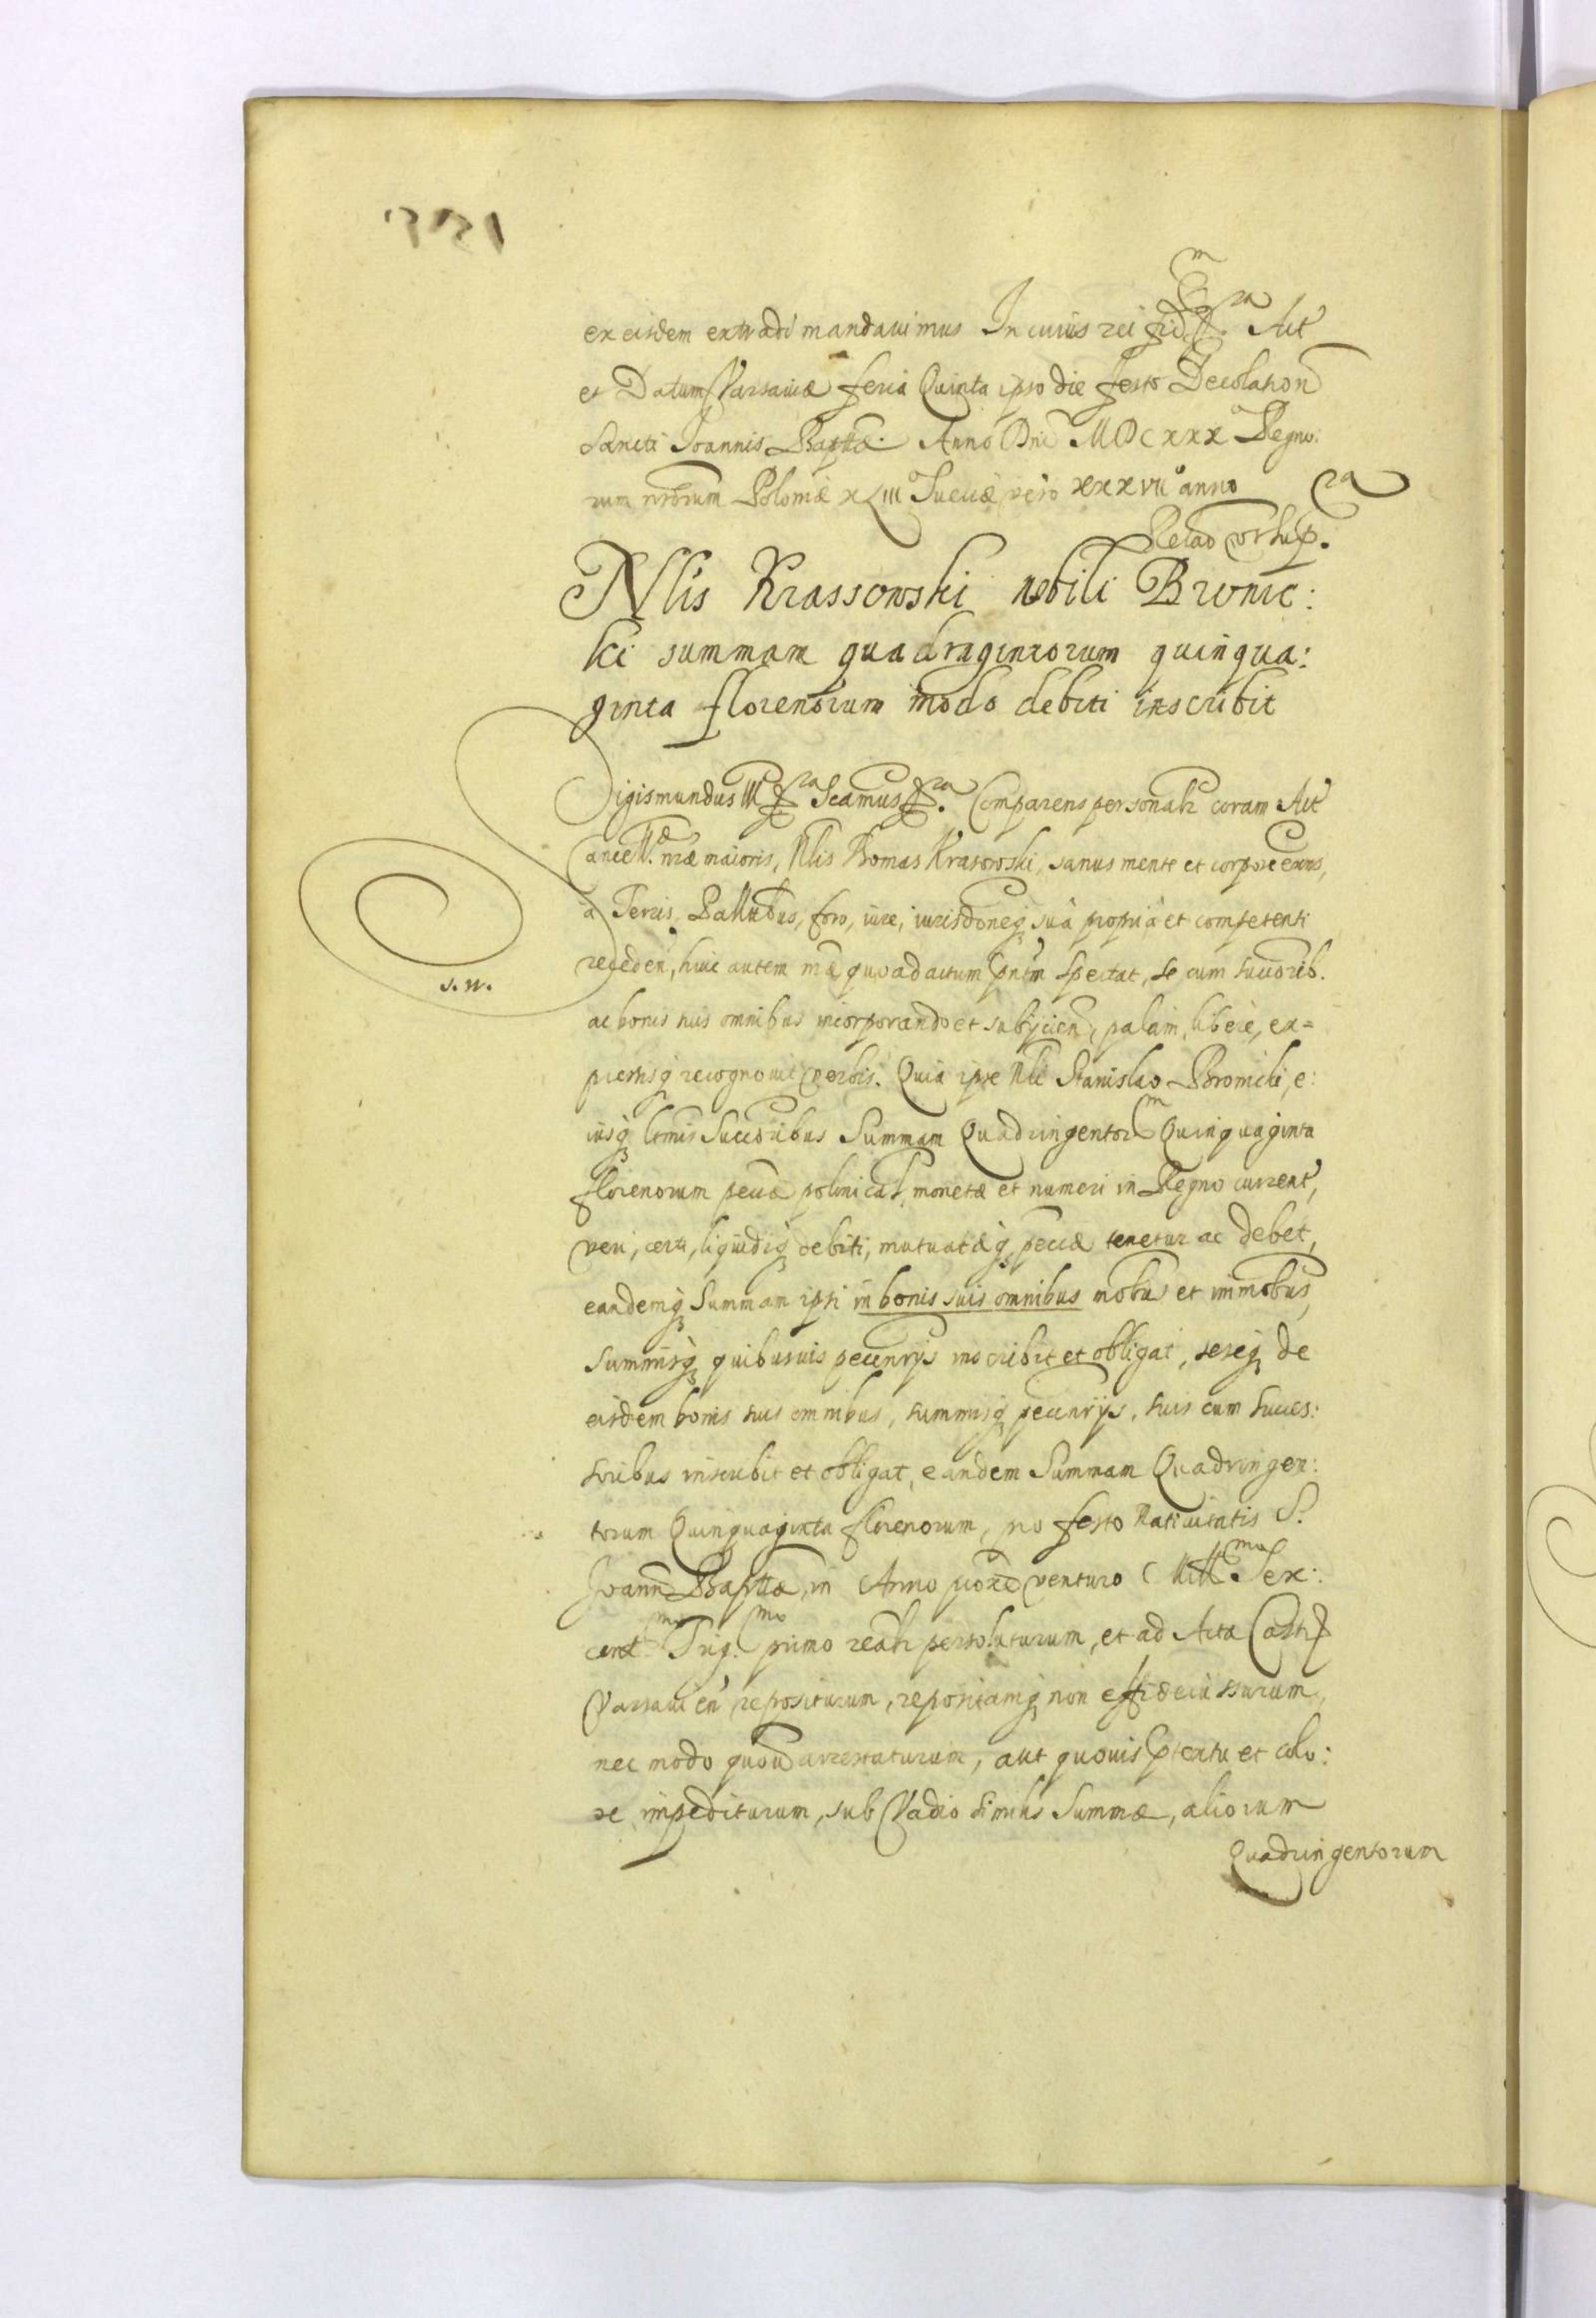 ex eisdem extradi mandauimus In cuius rei fid. Act
et Datum Varsauiæ feria Quinta ipso die festo Decolation
Sancti Ioannis Baptæ. Anno Dni MDCXXX Regno:
rum nrorum Poloniæ XLIII Sueciæ vero XXXVII anno
Relao
Nlis Krassowski nobili Bronic:
ki summam quadragintorum quinqua:
ginta florenorum modo debiti inscribit
Sigismundus III Comparens personalr coram Act
Canc maioris, Nlis Thomas Krasowski, sanus mente et corpore exns,
a Terris, Pallibus, foro, iure, iurisdoneq sua propria et competenti
receden, huic autem quoad actum pntm spectat, se cum succorib.
s. n.
ac bonis suis omnibus incorporando et subijcien, palam, libere, ex=
pressisq recognouit verbis. Quia ipse Nli Stanislao Bronicki, e:
iusq ltmis Succoribus Summam Quadringentor Quinquaginta
florenorum pecuæ polonical, monetæ et numeri in Regno current,
veri, certi, liquidiq debiti, mutuatæq pecuæ tenetur ac debet,
eandemq Summam ipsi in bonis suis omnibus mobus et immobus,
summisq quibusuis pecunrijs inscribit et obligat, seseq de
eisdem bonis suis omnibus, summisq pecunrijs, suis cum succes:
soribus inscribit et obligat, eandem Summam Quadringen:
torum Quinquaginta florenorum, pro festo Natiuitatis S.
Joann Baptæ, in Anno proxe venturo Millmo Sex:
centmo Trig.mo primo realr persoluturum, et ad Acta Castr
Varsauien repositurum, repositamq non
nec modo quouis arrestaturum, aut quouis ptextu et colo:
re impediturum, sub Vadio similis Summæ, aliorum
Quadringentorum